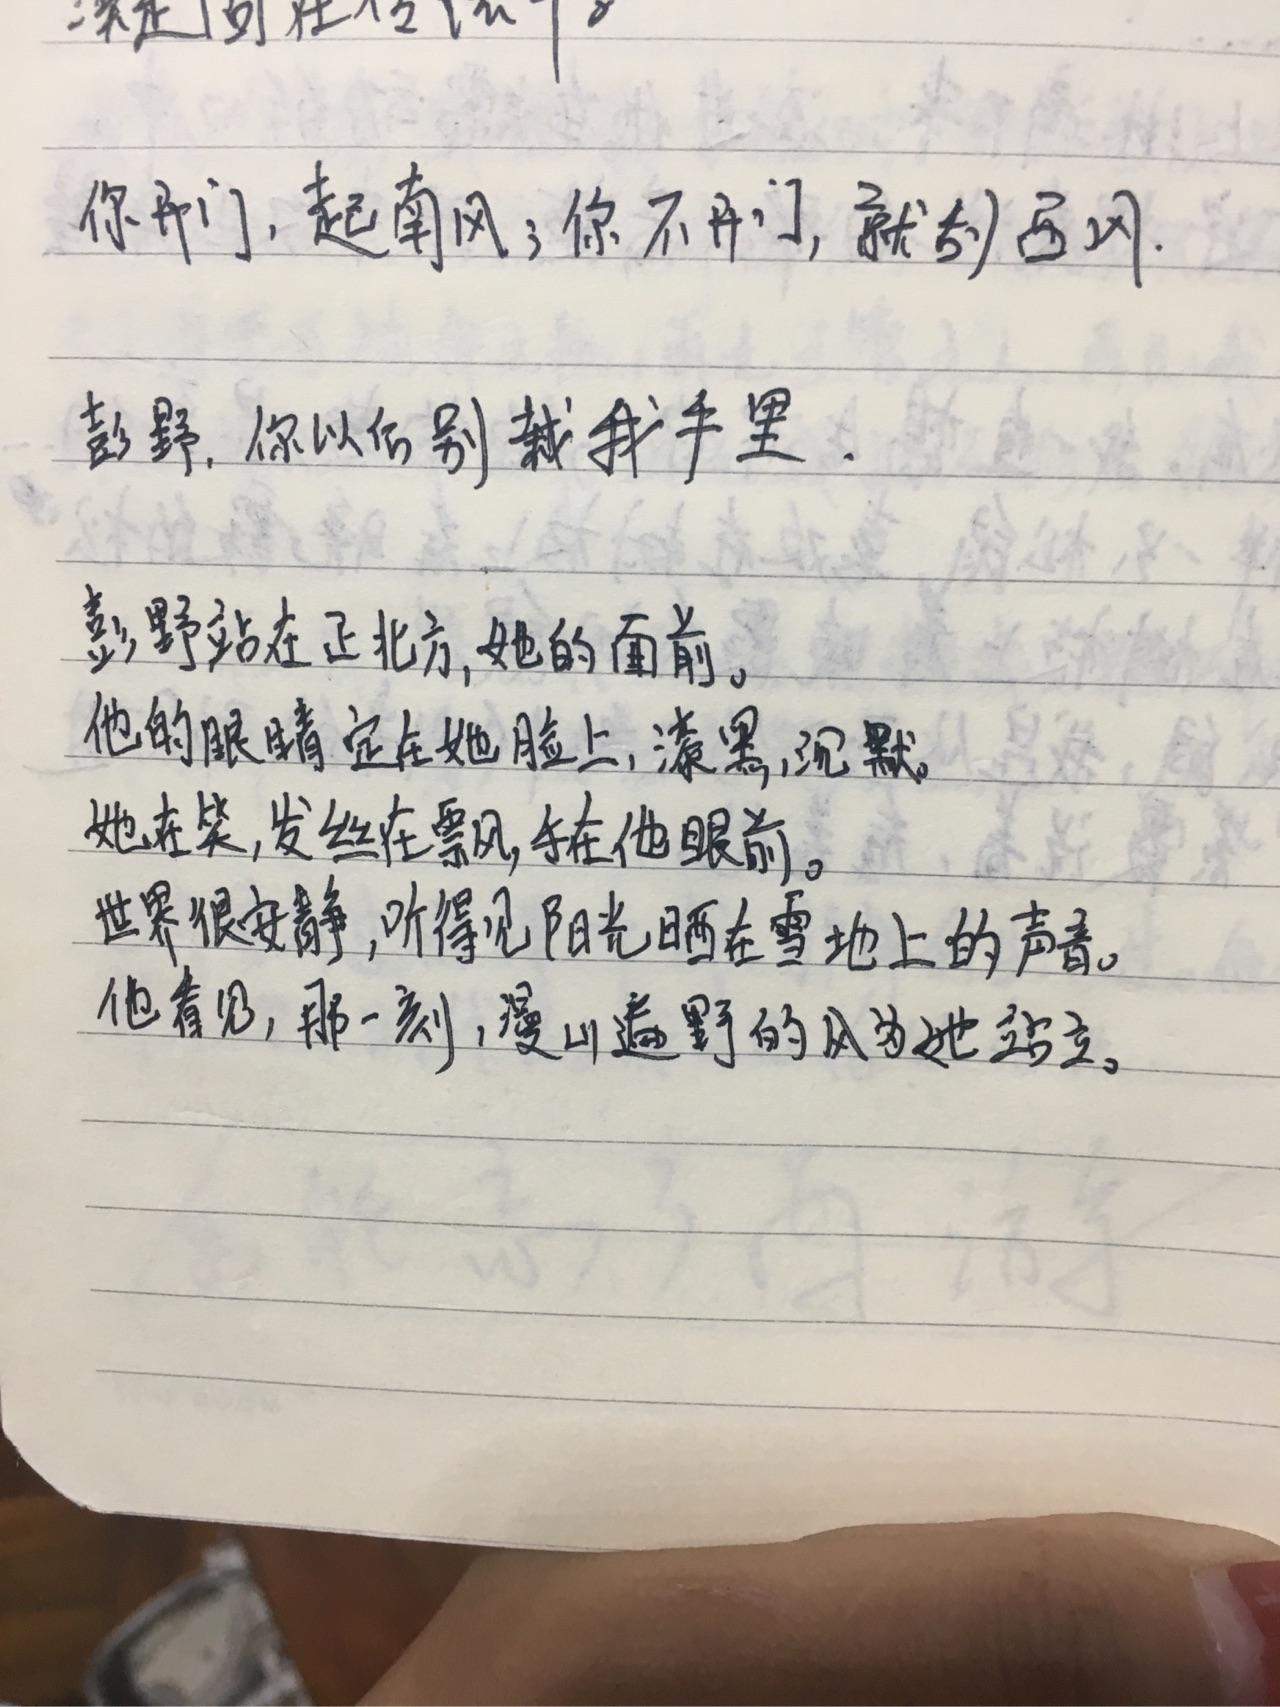 你开门，起南风；你不开门，就刮西风.
彭野，你以后别栽我手里.
彭野站在正北方，她的面前。
他的眼睛定在她脸上，漆黑，沉默。
她在笑，发丝在飘风，手在他眼前。
世界很安静，听得见阳光晒在雪地上的声音。
他看见，那一刻，漫山遍野的风为她站立。